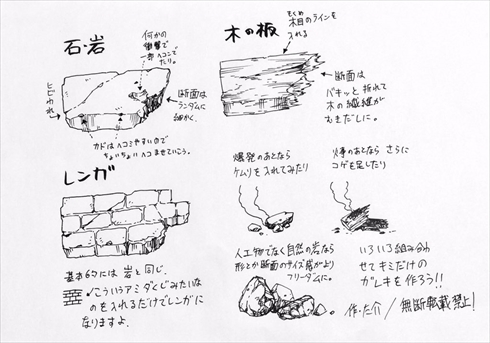 石・岩
何かの
衝撃で
一部ヘコンで
たり。
ヒビわれ
断面は
ランダムに
細かく。
カドはヘコミやすいので
ちょいちょいヘコませていこう。
木の板
もくめ
木目のラインを
入れる
断面は
バキッと折れて
木の繊維が
むきだしに。
レンガ
基本的には岩と同じ。
こういうアミダくじみたいな
のを入れるだけでレンガに
なりますよ。
爆発のあとなら
ケムリを入れてみたり
火事のあとなら さらに
コゲを足したり
人工物でなく自然の岩なら
形とか断面のサイズ感がより
フリーダムに。
いろいろ組み合わ
せてキミだけの
ガレキを作ろう!!
作・た介/無断転載禁止!